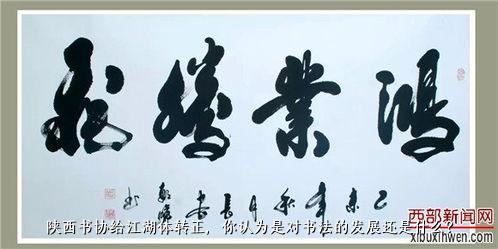 鴻業騰飛
年秋月長安
陕西书协给江湖体转正，你认为是对书法的发展还是什么？
西部新闻网